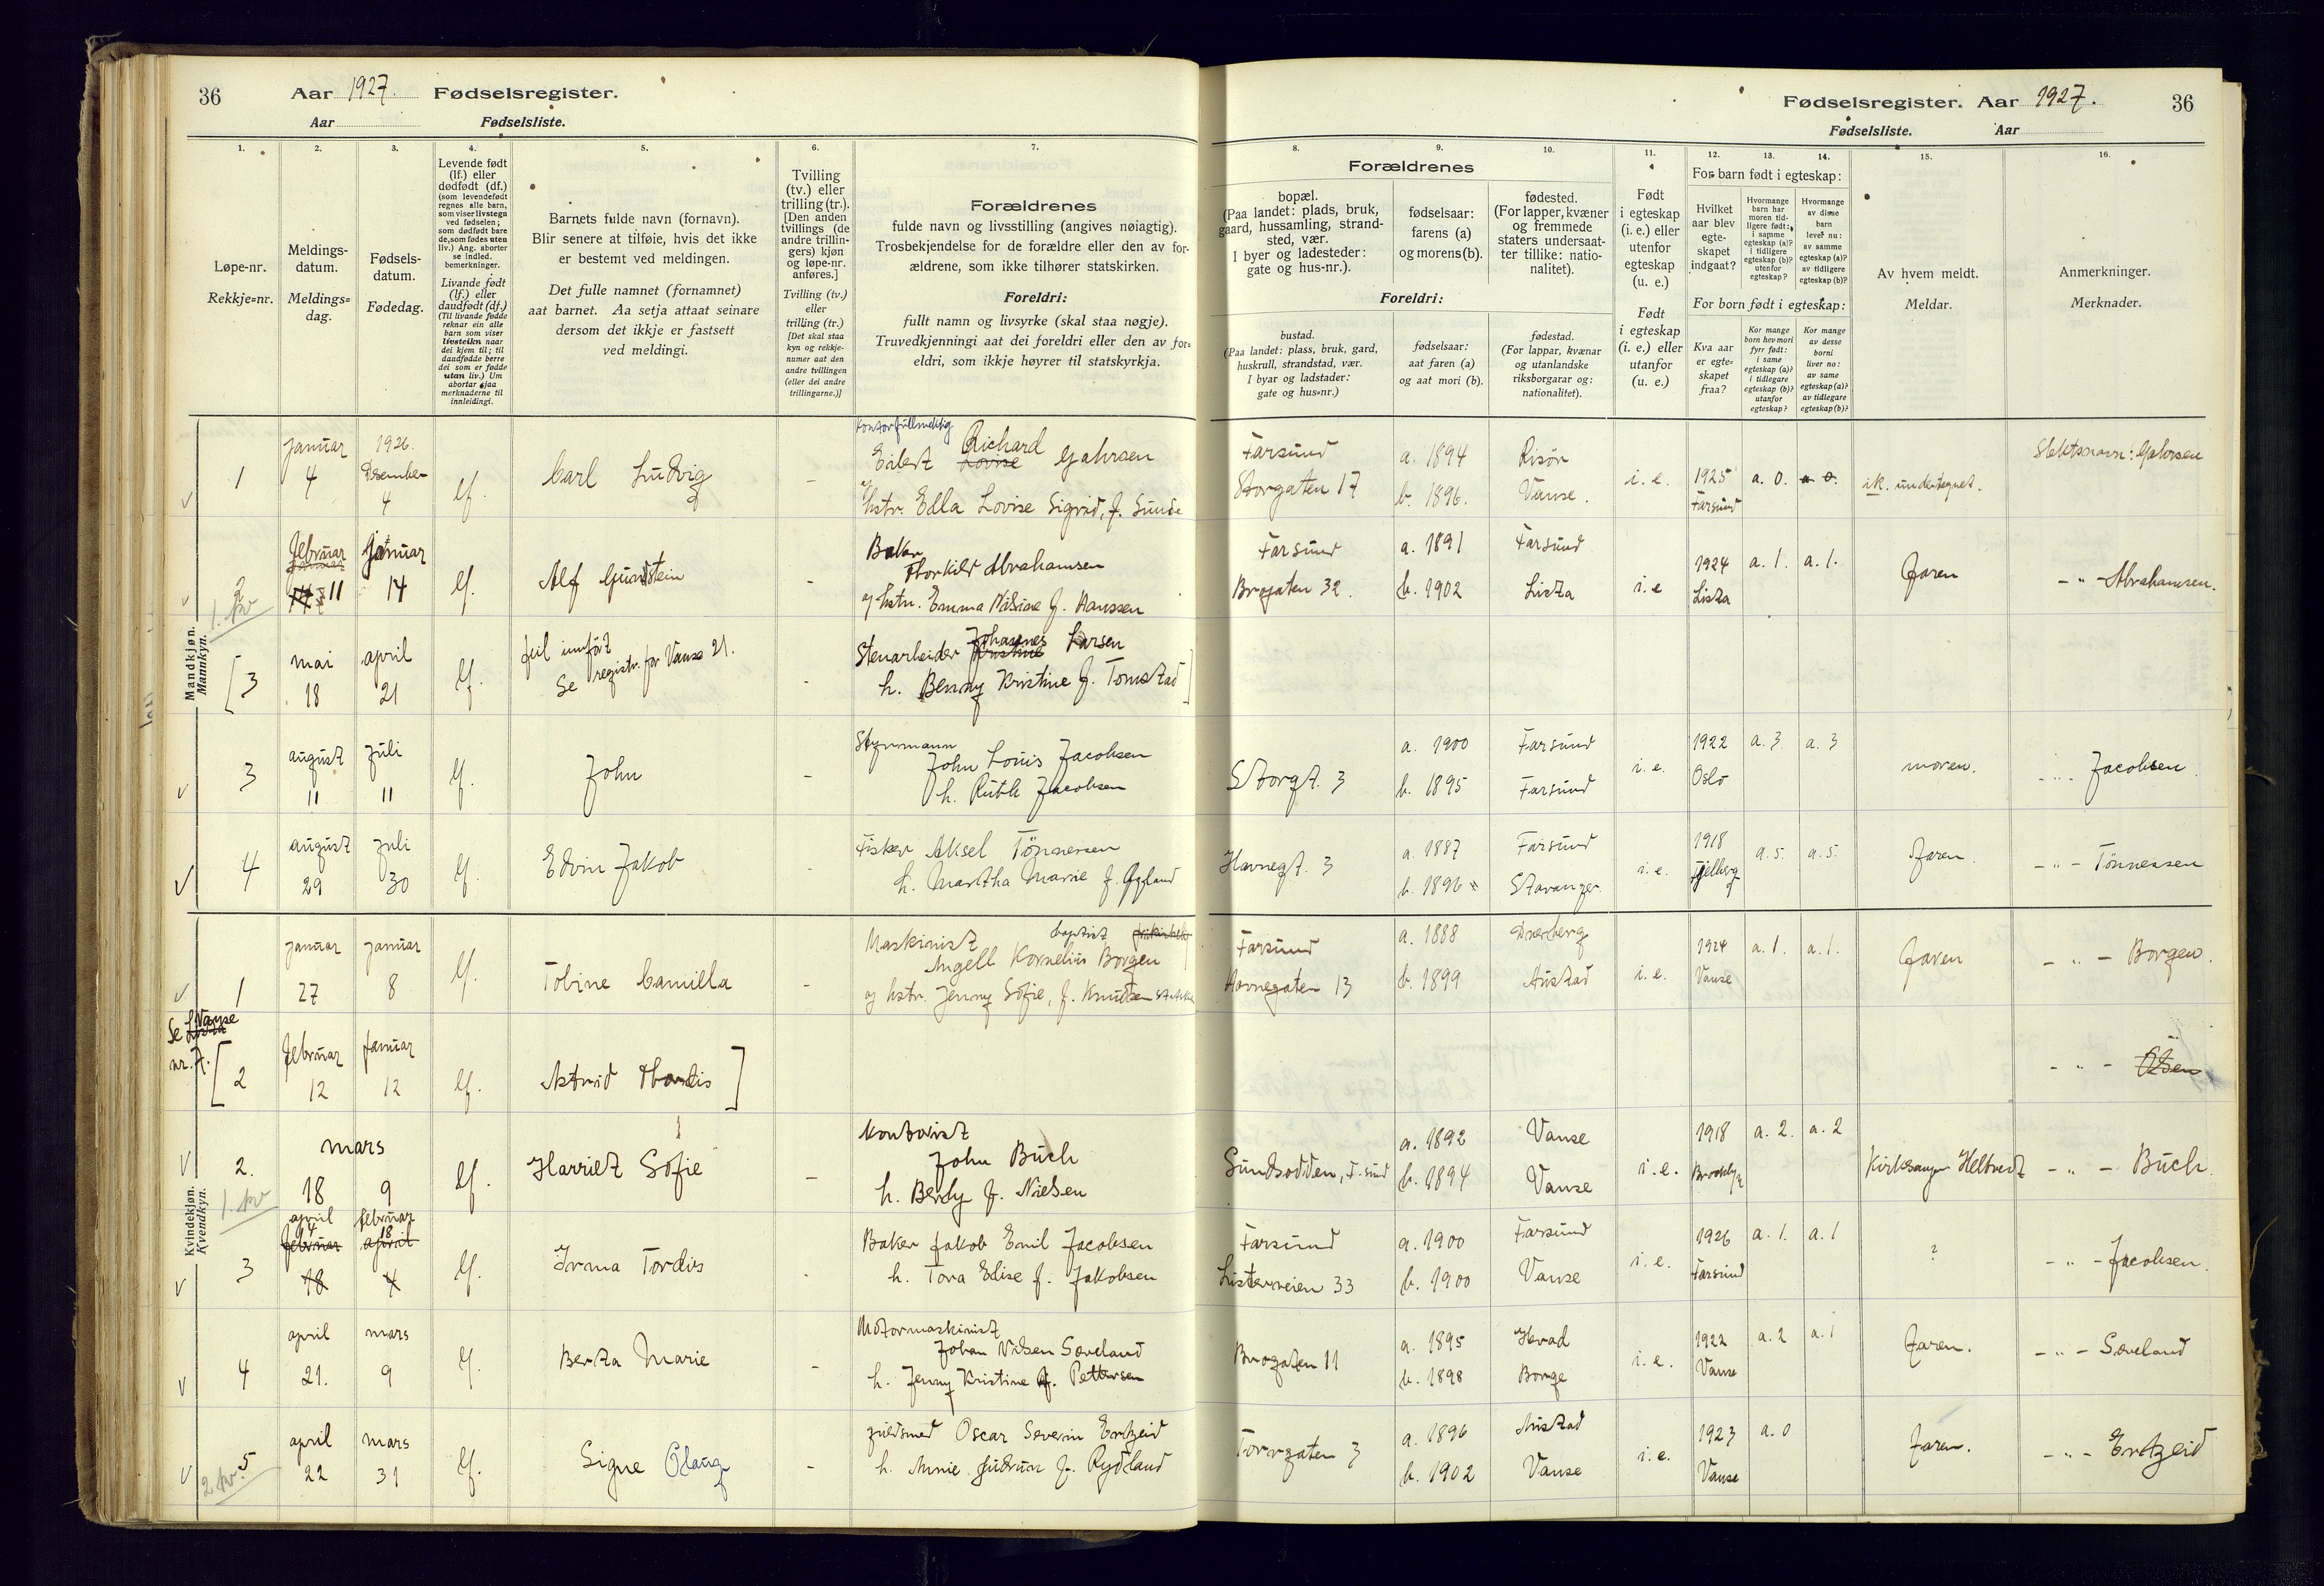 36
Aar 1927. Fødselsregister.
Aar Fødselsliste.
1.
2.
3.
4.
5.
6.
7.
Løpe-nr.
Rekkje=nr.
Meldings-
datum.
Meldings=
dag.
Fødsels-
datum.
Fødedag.
Levende født
(lf.) eller
dødfødt (df.)
(som levendefødt
regnes alle barn,
som viser livstegn
ved fødselen;
som dødfødt bare
de, som fødes uten
liv.) Ang. aborter
se indled.
bemerkninger.
Livande født
(lf.) eller
daudfødt (df.)
(Til livande fødde
reknar ein alle
barn som viser
livsteikn naar
dei kjem til; til
daudfødde berre
dei som er fødde
utan liv.) Um
abortar sjaa
merknaderne til
innleidingi.
Barnets fulde navn (fornavn).
Blir senere at tilføie, hvis det ikke
er bestemt ved meldingen.
Det fulle namnet (fornamnet)
aat barnet. Aa setja attaat seinare
dersom det ikkje er fastsett
ved meldingi.
Tvilling
(tv.) eller
trilling (tr.).
[Den anden
tvillings (de
andre trillin-
gers) kjøn
og løpe-nr.
anføres.]
Tvilling (tv.)
eller
trilling (tr.)
[Det skal staa
kyn og rekkje-
numer aat den
andre tvillingen
(eller dei andre
trillingarne.)]
Forældrenes
fulde navn og livsstilling (angives nøiagtig).
Trosbekjendelse for de forældre eller den av for-
ældrene, som ikke tilhører statskirken.
Foreldri:
fullt namn og livsyrke (skal staa nøgje).
Truvedkjenningi aat dei foreldri eller den av for=
eldri, som ikkje høyrer til statskyrkja.
Fødselsregister. Aar 1927. 36
Fødselsliste. Aar
8.
9.
10.
11.
12.
13.
14.
15.
16.
Forældrenes
bopæl.
(Paa landet: plads, bruk,
gaard, hussamling, strand-
sted, vær.
I byer og ladesteder:
gate og hus-nr.).
fødselsaar:
farens (a)
og morens (b).
fødested.
(For lapper, kvæner
og fremmede
staters undersaat-
ter tillike: natio-
nalitet).
Foreldri:
bustad.
(Paa landet: plass, bruk, gard,
huskrull, strandstad, vær.
I byar og ladstader:
gate og hus=nr.)
fødselsaar:
aat faren (a)
og aat mori (b).
fødestad.
(For lappar, kvænar
og utanlandske
riksborgarar og:
nationalitet).
Født
i egteskap
(i. e.) eller
utenfor
egteskap
(u. e.)
Født
i egteskap
(i. e.) eller
utanfor
(u. e.)
For barn født i egteskap:
Hvilket
aar blev
egte-
skapet
indgaat?
Hvormange
barn har
moren tid-
ligere født:
i samme
egteskap (a)?
i tidligere
egteskap (b)?
utenfor
egteskap?
Hvormange
av disse
barn
lever nu:
av samme
egteskap (a)?
av tidligere
egteskap (b)?
For born født i egteskap:
Kva aar
er egte=
skapet
fraa?
Kor mange
born hev mori
fyrr født:
i same
egteskap (a)?
i tidlegare
egteskap (b)?
utanfor
egteskap?
Kor mange
av desse
borni
liver no:
av same
egteskap (a)?
av tidlegare
egteskap (b)?
Av hvem meldt.
Meldar.
Anmerkninger.
Merknader.
Mandkjøn.
Mannkyn.
1 januar 4 1926. Desember 4 lf. Carl Ludvig -
Kontorfullmektig
Eilert Lovise Richard Gahrsen
og hstr. Edla Lovise Sigrid, f. Sunde
Farsund Storgaten 17 a. 1894 b. 1896. Risör Vanse. i. e. 1925 Farsund a. 0. a. 0. undertegnet. Slektsnavn: Gahrsen
2 februar januar 14 11 januar 14 lf. Alf Gundstein -
1. kv
Baker
Thorkild Abrahamsen
og hstr. Emma f. Hanssen
Farsund Brogaten 32. a. 1891 b. 1902 Farsund Lista i. e 1924 Lista a. 1. a. 1. Faren - " - Abrahamsen.
[3 mai 18 april 21 lf. feil innført
Se registr. for Vanse 21. -
Stenarbeider Kristine Johannes Larsen
h. Benny Kristine f. Tomstad]
3 august 11 juli 11 lf. John -
Styrmann
John Louis Jacobsen
h. Ruth Jacobsen
Storgt. 3 a. 1900 b. 1895 Farsund Farsund i. e. 1922 Oslo a. 3. a. 3 moren. - " - Jacobsen
4 august 29 juli 30 lf. Edvin Jakob -
Fisker Aksel Tönnessen
h. Martha Marie f. Gyland
Havnegt. 3 a. 1887 b. 1896 Farsund Stavanger i. e. 1918 Fjelberg a. 5. a. 5. Faren. - " - Tönnessen
Kvindekjøn.
Kvendkyn.
1 januar 27 januar 8 lf. Tobine Camilla -
Maskinist baptist
Angell Kornelius Borgen
og hstr. Jenny Sofie, f. Knutsen
Farsund Havnegaten 13 a. 1888 b. 1899 Austad i. e. 1924 Vanse a. 1. a. 1. Faren - " - Borgen.
Se Lista Vanse
nr. 7. [2 februar 12 januar 12 lf. Astrid Thordis] - " - Olsen
2. mars 18 9 lf. Harriet Sofie -
1. kv
Kontorist
John Buch
h. Berdy f. Nielsen
Sundsodden, F.sund a. 1892 b. 1894 Vanse Vanse i. e. 1918 Brooklyn a. 2. a. 2 Kirkesanger Heltvedt - " - Buch.
3 april 4 februar 18 februar 18 april 4 lf. Irma Tordis -
Baker Jakob Emil Jacobsen
h. Tora Elise f. Jakobsen
Farsund Listerveien 33 a. 1900 b. 1900 Farsund Vanse i. e. 1926 Farsund a. 1. a. 1 ? - " - Jacobsen.
4 april 21. mars 9 lf. Berta Marie -
Motormaskinist
Johan Nilsen Sæveland
h. Jenny Kristine f. Pettersen
Brogaten 11 a. 1895 b. 1898 Borge i. e. 1922 Vanse a. 2 a. 1 Faren. - " - Sæveland
5 april 22 mars 31 lf. Signe Olaug -
2 kv.
gullsmed Oscar Severin Ertzeid
h. Annie Gudrun f. Rydland
Torvgaten 3 a. 1896 b. 1902 Austad Vanse i. e. 1923 Vanse a. 0 Faren. - " - Ertzeid